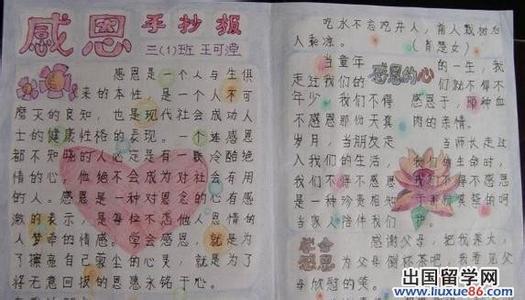 感恩 手抄报
三(1)班 王可
感恩是一个人与生俱
来的本性,是一个人不可
磨灭的良知,也是现代社会成功人
士的健康性格的表现。一个连感恩
都不知晓的人必定是有一颗冷酷绝
情的心,他绝不会成为对社会有用
的人。感恩是一种对恩的心有感
激的表示,是每位不忘他人恩情的
人的情感。学会感恩,就是为
了擦亮自己蒙尘的心灵,就是为了
将无意回报的恩惠永铭于心。
吃水不忘吃井人,前人栽树后
人乘凉。
感恩的心
当童年的一生,我
走过我们的们就不得不
年少我们不得感恩于,那种血
不感恩那份天真肉的亲情。
岁月,当朋友走当师长走过
入我们的生活,我们的生命时,
我们不得不感恩我们不得不感恩
是一种珍贵相于那
当家人陪伴我们
学会感恩
感谢父母,把我养大,
为父母倒杯茶吧,我
母欣慰的笑。
出国留学网
www.liuxue86.com